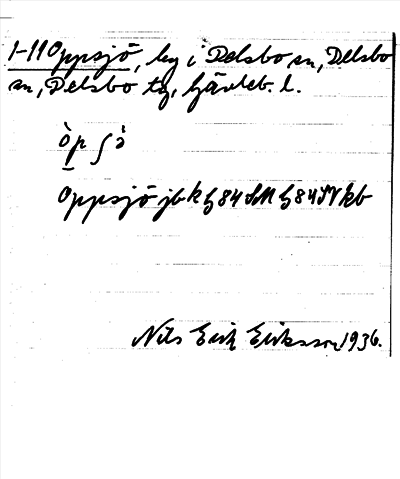 1-11 Oppsjö, by i Delsbo sn, Delsbo
sn, Delsbo tg, Gävleb. l.
òp ʃö̀
Oppsjö jb k h 84 SM h 84 SV kb
Nils Erik Eriksson 1936.